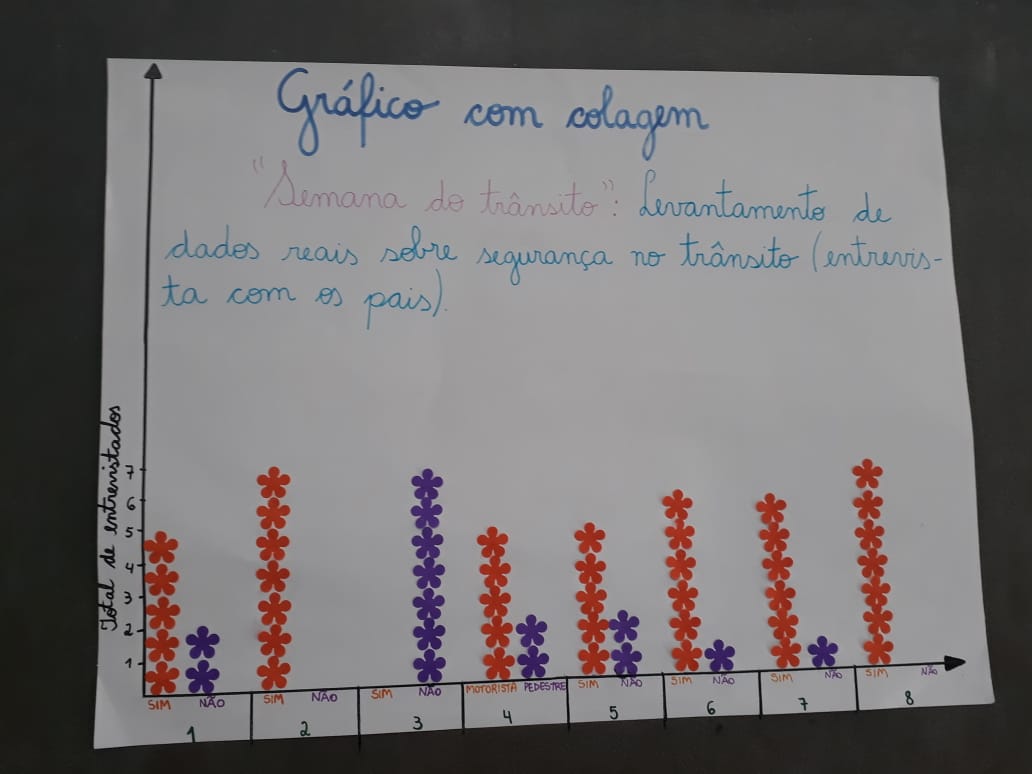 Gráfico com colagem
"Semana do trânsito": Levantamento de
dados reais sobre segurança no trânsito (entrevis-
ta com os pais).
Total de entrevistados
7
6
5
4
3
2
1
SIM NÃO SIM NÃO SIM NÃO MOTORISTA PEDESTRE SIM NÃO SIM NÃO SIM NÃO SIM NÃO
1 2 3 4 5 6 7 8